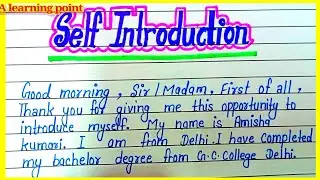 A learning point
Self Introduction
Good morning, Sir/Madam, First of all,
Thank you for giving me this opportunity to
introduce myself. My name is Amisha
kumari. I am from Delhi. I have completed
my bachelor degree from G.C. College Delhi.